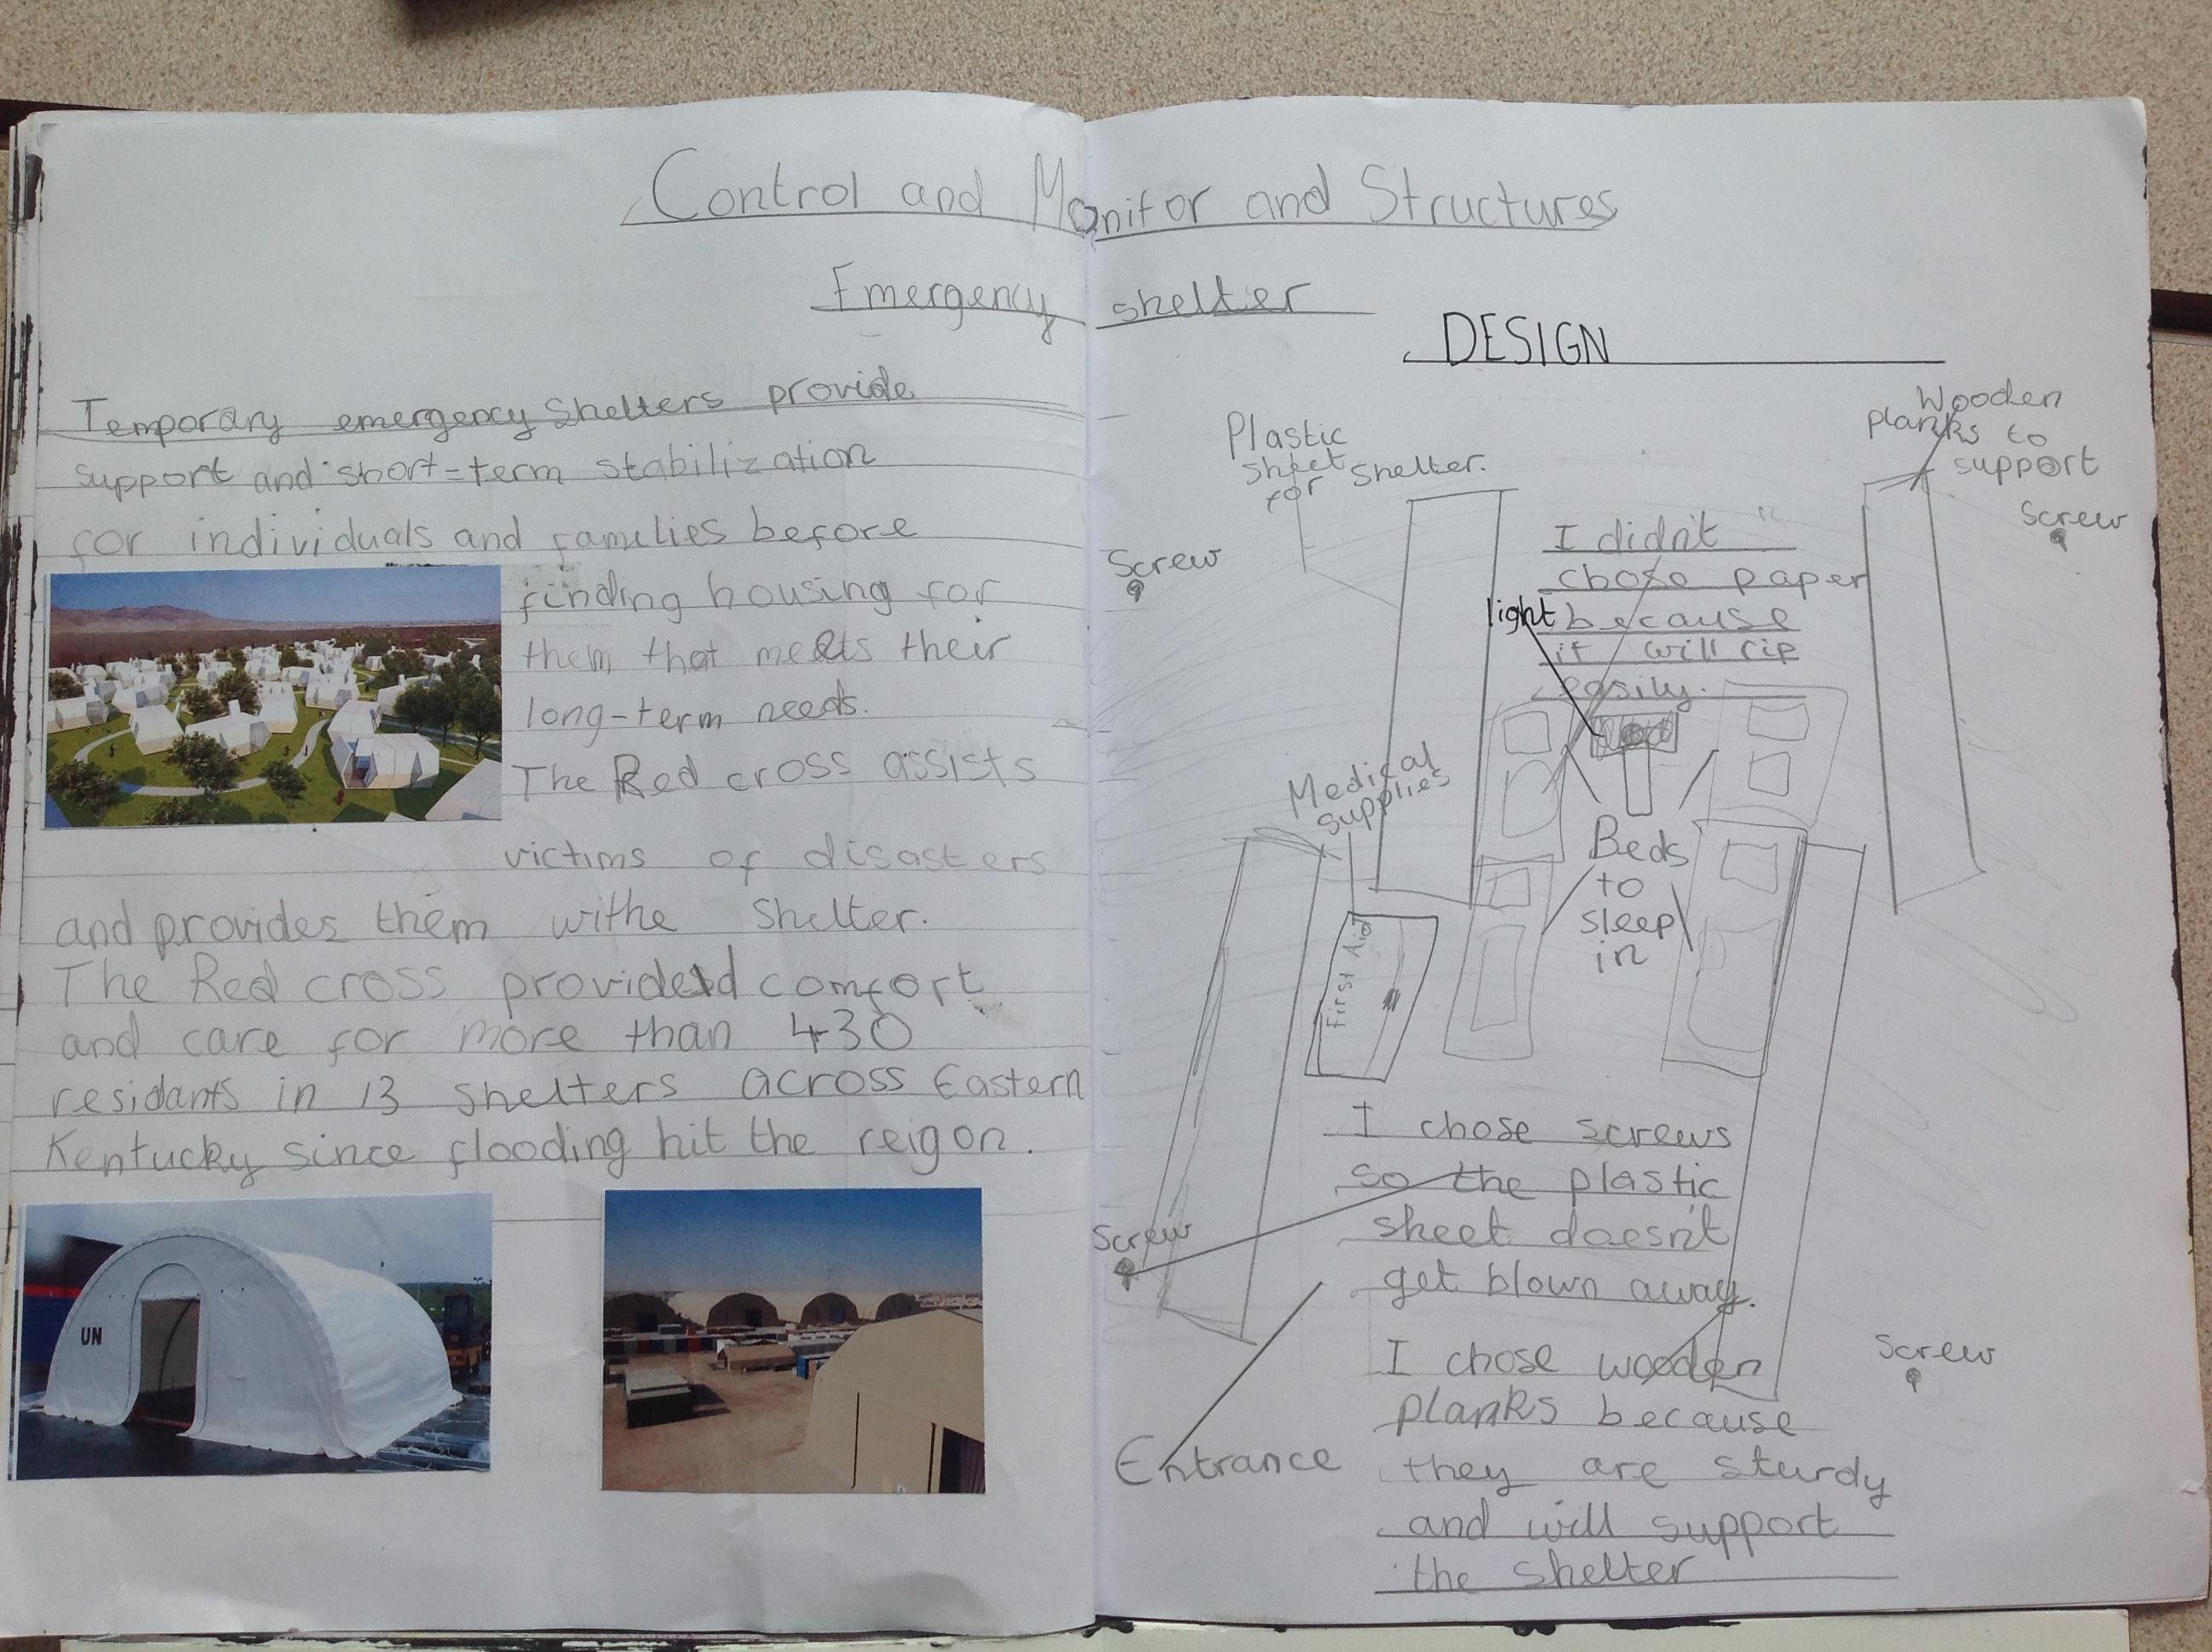 Control and Monitor and Structures
Emergency shelter
Temporary emergency Shelters provide
support and short-term stabilization
for individuals and families before
finding housing for
them that meets their
long-term needs.
The Red cross assists
victims of disasters
and provides them withe shelter.
The Red cross provided comfort
and care for more than 430
residants in 13 shelters across Eastern
Kentucky since flooding hit the reigon.
UN
DESIGN
Plastic
sheet
for shelter.
Wooden
planks to
support
Screw
Screw
I didn't
chose paper
because
it will rip
easily.
light
Medical
supplies
Beds
to
sleep
in
First Aid
I chose screws
so the plastic
sheet doesn't
get blown away.
Screw
I chose wooden
planks because
they are sturdy
and will support
the shelter
Screw
Entrance